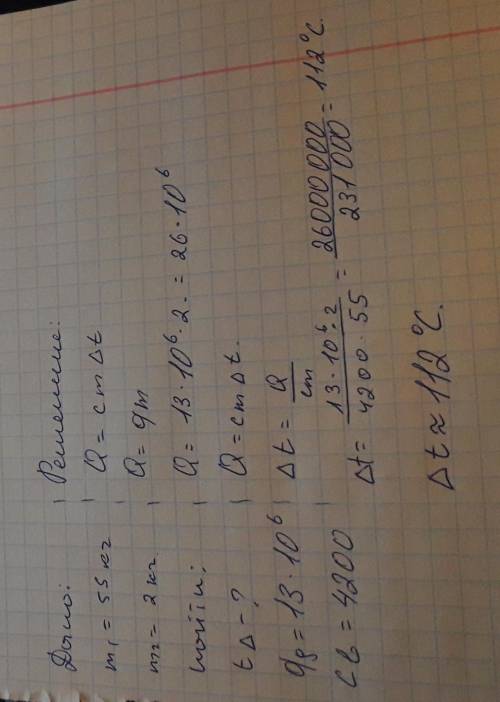 Дано:
m₁ = 55 кг
m₂ = 2 кг
найти:
t Δ - ?
q₈ = 13 · 10⁶
cв = 4200
Решение:
Q = cmΔt
Q = qm
Q = 13 · 10⁶ · 2 · = 26 · 10⁶
Q = cmΔt.
Δt = Q/cm
Δt = 13 · 10⁶ · 2/4200 · 55 = 26000000/231000 = 112°C.
Δt ≈ 112°C.